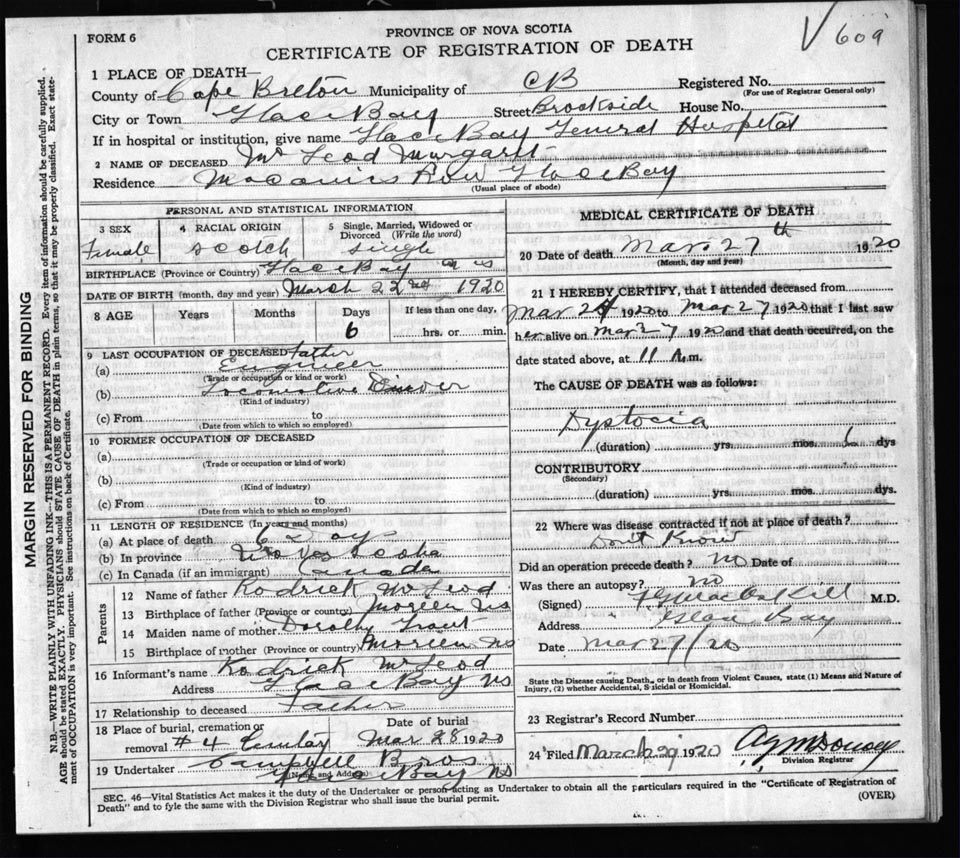 609
FORM 6
PROVINCE OF NOVA SCOTIA
CERTIFICATE OF REGISTRATION OF DEATH
MARGIN RESERVED FOR BINDING
N.B.—WRITE PLAINLY WITH UNFADING INK—THIS IS A PERMANENT RECORD. Every item of information should be carefully supplied.
AGE should be stated EXACTLY. PHYSICIANS should STATE CAUSE OF DEATH in plain terms, so that it may be properly classified. Exact state-
ment of OCCUPATION is very important. See instructions on back of Certificate.
1 PLACE OF DEATH—
County of Cape Breton Municipality of CB Registered No.
(For use of Registrar General only)
City or Town Glace Bay Street Brookside House No.
If in hospital or institution, give name Glace Bay General Hospital
2 NAME OF DECEASED Mc Leod Margaret
Residence Row Glace Bay
(Usual place of abode)
PERSONAL AND STATISTICAL INFORMATION
3 SEX 4 RACIAL ORIGIN 5 Single, Married, Widowed or Divorced (Write the word)
Female Scotch Single
BIRTHPLACE (Province or Country) Glace Bay
DATE OF BIRTH (month, day and year) March 22 1920
8 AGE Years Months Days If less than one day,
6 hrs. or min.
9 LAST OCCUPATION OF DECEASED Father
(a) Engineer
(Trade or occupation or kind or work)
(b) Locomotive Driver
(Kind of industry)
(c) From to
(Date from which to which so employed)
10 FORMER OCCUPATION OF DECEASED
(a)
(Trade or occupation or kind of work)
(b)
(Kind of industry)
(c) From to
(Date from which to which so employed)
11 LENGTH OF RESIDENCE (In years and months)
(a) At place of death 6 Days
(b) In province Nova Scotia
(c) In Canada (if an immigrant) Canada
Parents
12 Name of father Rodrick McLeod
13 Birthplace of father (Province or country) Morien NS
14 Maiden name of mother Dorothy Grant
15 Birthplace of mother (Province or country) Morien NS
16 Informant's name Rodrick McLeod
Address Glace Bay NS
17 Relationship to deceased Father
18 Place of burial, cremation or Date of burial
removal #4 Mar 28 1920
19 Undertaker Campbell Bros
(Name and Address) Glace Bay NS
MEDICAL CERTIFICATE OF DEATH
20 Date of death Mar 27th 1920
(Month, day and year)
21 I HEREBY CERTIFY, that I attended deceased from
Mar 1920 to Mar 27 1920 that I last saw
her alive on Mar 27 1920 and that death occurred, on the
date stated above, at 11 A.m.
The CAUSE OF DEATH was as follows:
Dystocia
(duration) yrs mos 6 dys
CONTRIBUTORY
(Secondary)
(duration) yrs mos. dys.
22 Where was disease contracted if not at place of death?
Dont Know
Did an operation precede death? no Date of
Was there an autopsy? no
(Signed) M.D.
Address Glace Bay
Date Mar 27/20
State the Disease causing Death, or in death from Violent Causes, state (1) Means and Nature of
Injury, (2) whether Accidental, Suicidal or Homicidal.
23 Registrar's Record Number
24 Filed March 29 1920
Division Registrar
SEC. 46—Vital Statistics Act makes it the duty of the Undertaker or person acting as Undertaker to obtain all the particulars required in the "Certificate of Registration of
Death" and to fyle the same with the Division Registrar who shall issue the burial permit.
(OVER)